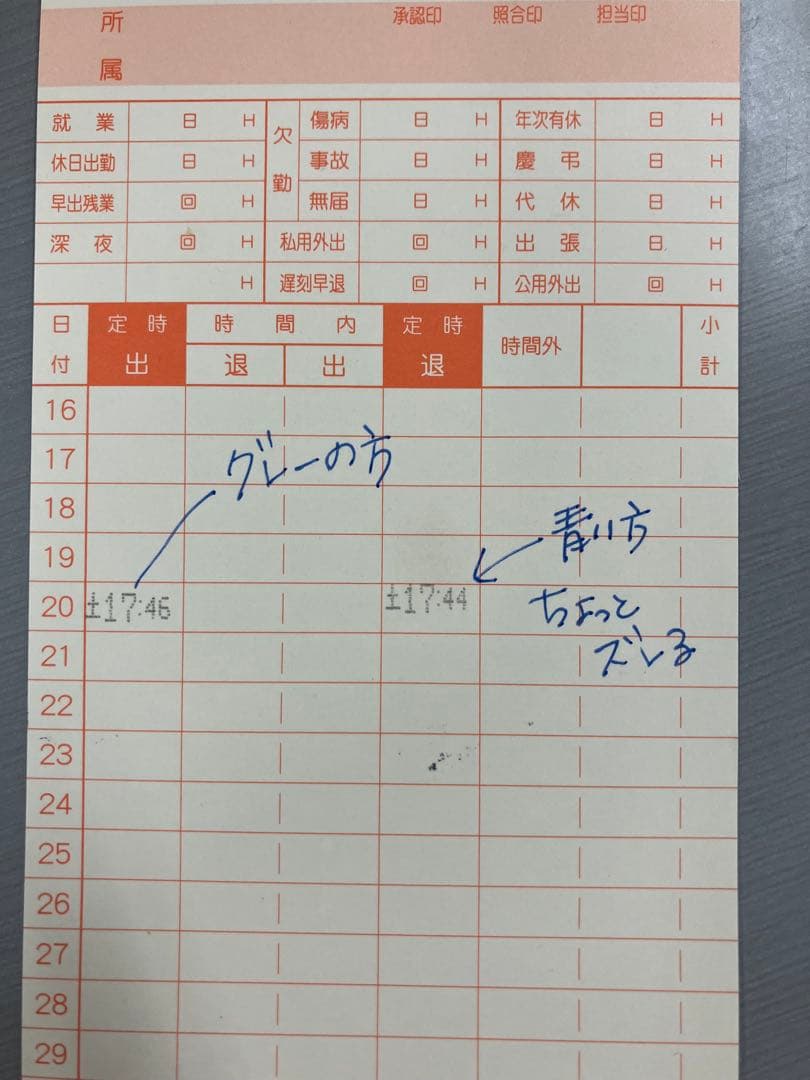 所属
承認印 照合印 担当印
就業 日 H 欠勤 傷病 日 H 年次有休 日 H
休日出勤 日 H 事故 日 H 慶弔 日 H
早出残業 回 H 無届 日 H 代休 日 H
深夜 回 H 私用外出 回 H 出張 日 H
H 遅刻早退 回 H 公用外出 回 H
日付 定時出 時間内 退 出 定時退 時間外 小計
16
17
グレーの方
18
青い方
19
20 土17:46 土17:44
ちょっと
ズレる
21
22
23
24
25
26
27
28
29